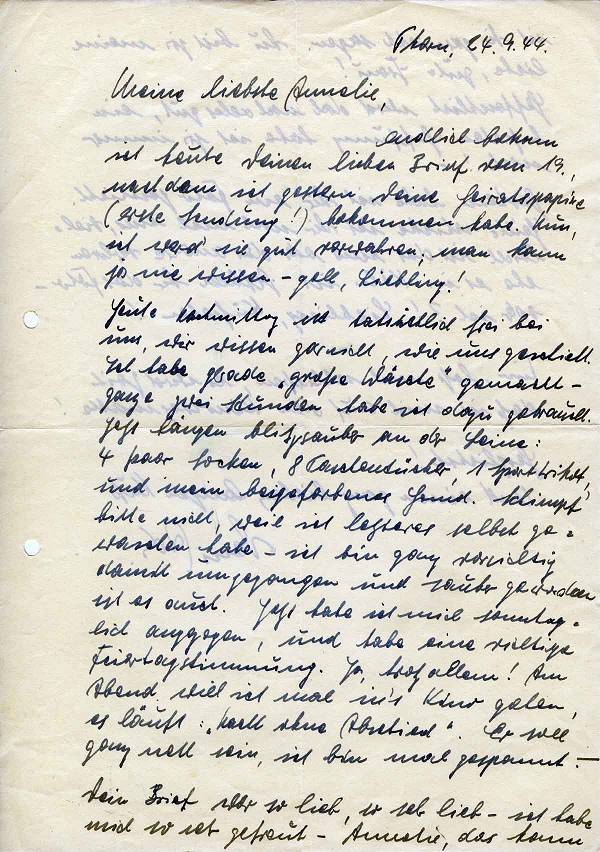 Thorn, 24.9.44.
Meine liebste Annelie,
endlich bekam
ich heute Deinen lieben Brief vom 19.,
nachdem ich gestern Deine Heiratspapiere
(erste Sendung!) bekommen habe. Nun,
ich werd' sie gut verwahren, man kann
ja nie wissen – gell, Liebling!
Heute Nachmittag ist tatsächlich frei bei
uns, wir wissen garnicht, wie uns geschieht.
Ich habe gerade „große Wäsche“ gemacht –
ganze zwei Stunden habe ich dazu gebraucht.
Jetzt hängen blitzsauber an der Leine:
4 Paar Socken, 8 Taschentücher, 1 Sporttrikot,
und mein beigefarbenes Hemd. Schimpf
bitte nicht, weil ich letzteres selbst ge=
waschen habe – ich bin ganz vorsichtig
damit umgegangen und sauber geworden
ist es auch. Jetzt habe ich mich sonntäg=
lich angezogen, und habe eine richtige
Feiertagstimmung. Ja, trotz allem! Am
Abend will ich mal in's Kino gehen,
es läuft: „Nacht ohne Abschied“. Er soll
ganz nett sein, ich bin mal gespannt. –
Dein Brief war so lieb, so sehr lieb – ich habe
mich so sehr gefreut – Annelie, das kann